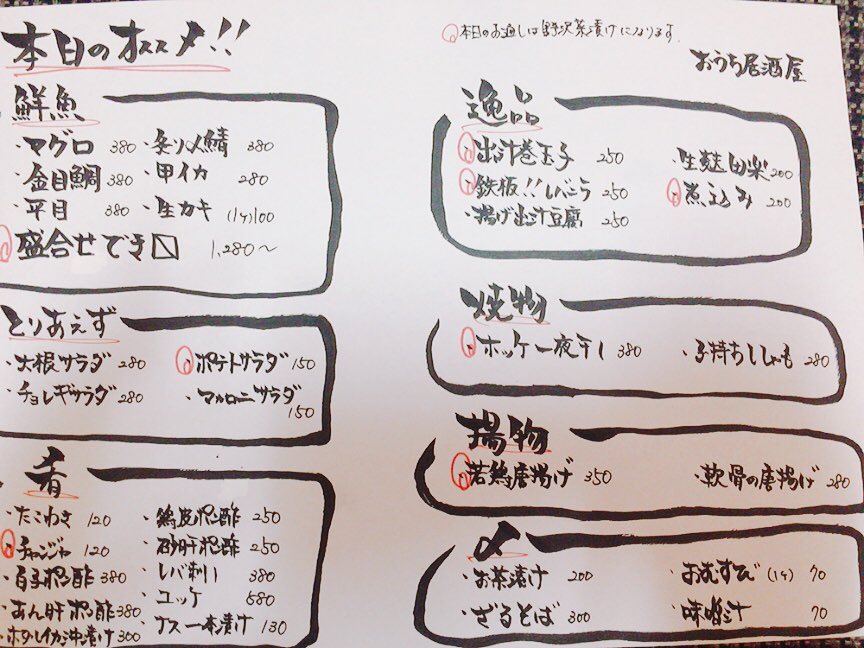 本日のオススメ!!
鮮魚
・マグロ 380 ・炙り〆鯖 380
・金目鯛 380 ・甲イカ 280
・平目 380 ・生カキ (1ヶ)100
盛合せでき〼 1,280〜
とりあえず
・大根サラダ 280 ・ポテトサラダ 150
・チョレギサラダ 280 ・マカロニサラダ 150
肴
・たこわさ 120 ・鶏皮ポン酢 250
・チャンジャ 120 ・砂肝ポン酢 250
・白子ポン酢 380 ・レバ刺し 380
・あん肝ポン酢 380 ・ユッケ 580
・ホタルイカ沖漬け 300 ・ナス一本漬け 130
本日のお通しは野沢菜漬けになります.
おうち居酒屋
逸品
・出汁巻玉子 250 ・生麩田楽 200
・鉄板!!レバニラ 250 ・煮込み 200
・揚げ出汁豆腐 250
焼物
・ホッケ一夜干し 380 ・子持ちししゃも 280
揚物
・若鶏唐揚げ 350 ・軟骨の唐揚げ 280
〆
・お茶漬け 200 ・おむすび (1ヶ) 70
・ざるそば 300 ・味噌汁 70